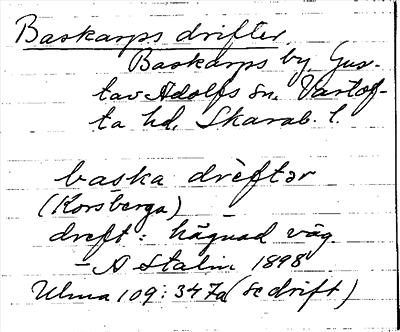 Baskarps drifter
Baskarps by, Gus-
tav Adolfs sn, Vartof-
ta hd, Skarab. l.
baska drèftər
(Korsberga)
dreft: hägnad väg
- A Stalin 1898
Ulma 109:347a (se drift)